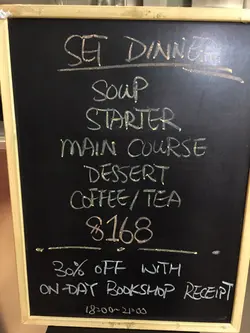 SET DINNER
SOUP
STARTER
MAIN COURSE
DESSERT
COFFEE/TEA
$168
30% OFF WITH
ON-DAY BOOKSHOP RECEIPT
18:00~21:00